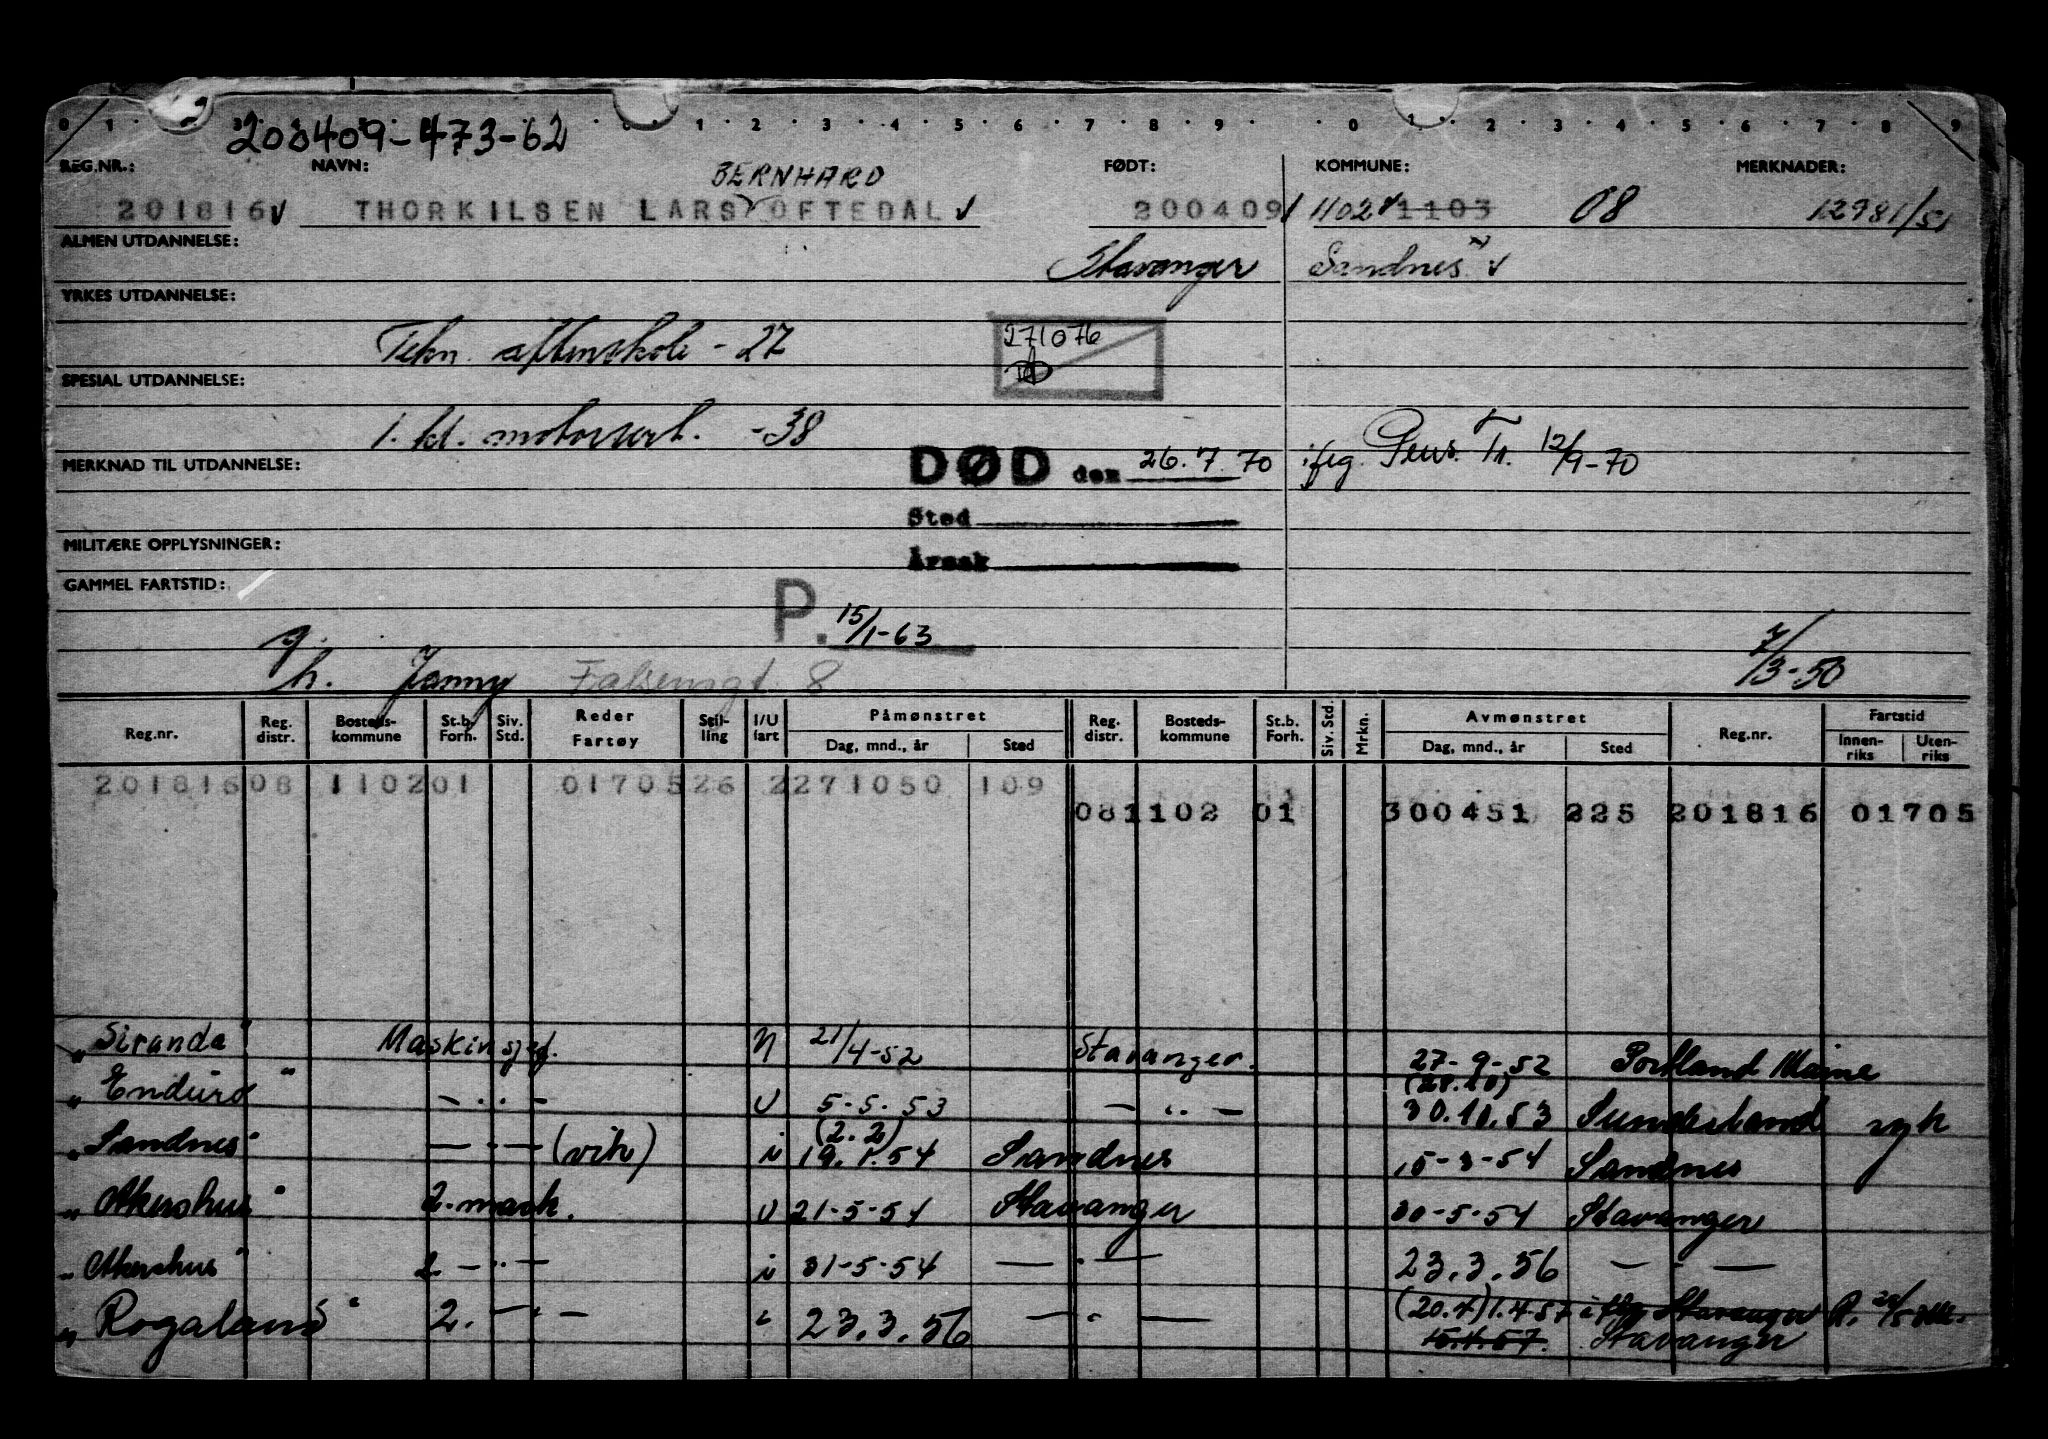 0 1 2 3 4 5 6 7 8 9 0 1 2 3 4 5 6 7 8 9
200409-473-62
REG.NR.: NAVN: FØDT: KOMMUNE: MERKNADER:
BERNHARD
201816 THORKILSEN LARS OFTEDAL 200409 1102 1103 08 12981/51
ALMEN UTDANNELSE:
Stavanger Sandnes
YRKES UTDANNELSE:
Tekn. aftenskole - 27 271076
SPESIAL UTDANNELSE:
1. kl. motorsert. -38
DØD den 26.7.70 ifлg. Pens. Tr. 12/9-70
MERKNAD TIL UTDANNELSE:
Sted
MILITÆRE OPPLYSNINGER:
Årsak
GAMMEL FARTSTID:
P. 15/1-63
g/h. Jenny Falsensgt. 8 7/3-50
Reg.nr. Reg. distr. Bosteds-kommune St.b. Forh. Siv. Std. Reder Fartøy Stil-ling I/U fart Påmønstret Dag, mnd., år Sted Reg. distr. Bosteds-kommune St.b. Forh. Siv. Std. Mrkn. Avmønstret Dag, mnd., år Sted Reg.nr. Fartstid Innen-riks Uten-riks
201816 08 1102 01 01705 26 2 271050 109
08 1102 01 300451 225 201816 01705
"Siranda" Maskinsjef. N 21/4-52 Stavanger. 27-9-52 Portland Maine
"Enduro" -"- U 5-5-53 -"- (28.10) 30.10.53 Sunderland syk
"Sandnes" -"- (vik) i (2.2) 19.1.54 Sandnes 15-3-54 Sandnes
"Akershus" 2. mask. U 21-5-54 Stavanger 30-5-54 Stavanger
"Akershus" 2 -"- i 31-5-54 -"- 23.3.56 -"-
"Rogaland" 2. -"- i 23.3.56 -"- (20.4) 1.4.57 iflg Stavanger
15.4.57. Stavanger